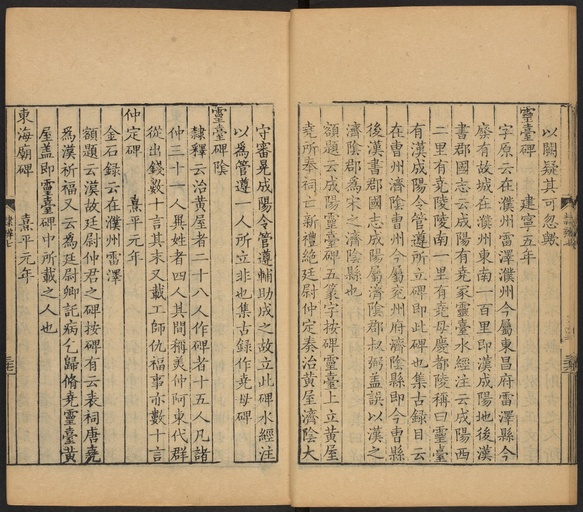 以闕疑其可忽歟
靈臺碑 建寧五年
字原云在濮州雷澤濮州今屬東昌府雷澤縣今
廢有故城在濮州東南一百里即漢成陽地後漢
書郡國志云成陽有堯冢靈臺水經注云成陽西
二里有堯陵陵南一里有堯母慶都陵稱曰靈臺
有漢成陽令管遵所立碑即此碑也集古録目云
在曹州濟陰曹州今屬兗州府濟陰縣即今曹縣
後漢書郡國志成陽屬濟陰郡叔弼蓋誤以漢之
濟陰郡爲宋之濟陰縣也
額題云成陽靈臺碑五篆字按碑靈臺上立黄屋
堯所奉祠亡新禮絶廷尉仲定奏治黄屋濟陰大
守審晃成陽令管遵輔助成之故立此碑水經注
以為管遵一人所立非也集古録作堯母碑
靈臺碑陰
隸釋云治黄屋者二十八人作碑者十五人凡諸
仲三十一人異姓者四人其間稱美仲阿東代群
從出錢數十言其末又載工師仇福事亦數十言
仲定碑 熹平元年
金石録云在濮州雷澤
額題云漢故廷尉仲君之碑按碑有云表祠唐堯
為漢祈福又云為廷尉卿託病乞歸脩堯靈臺黄
屋盖即靈臺碑中所載之人也
東海廟碑 熹平元年